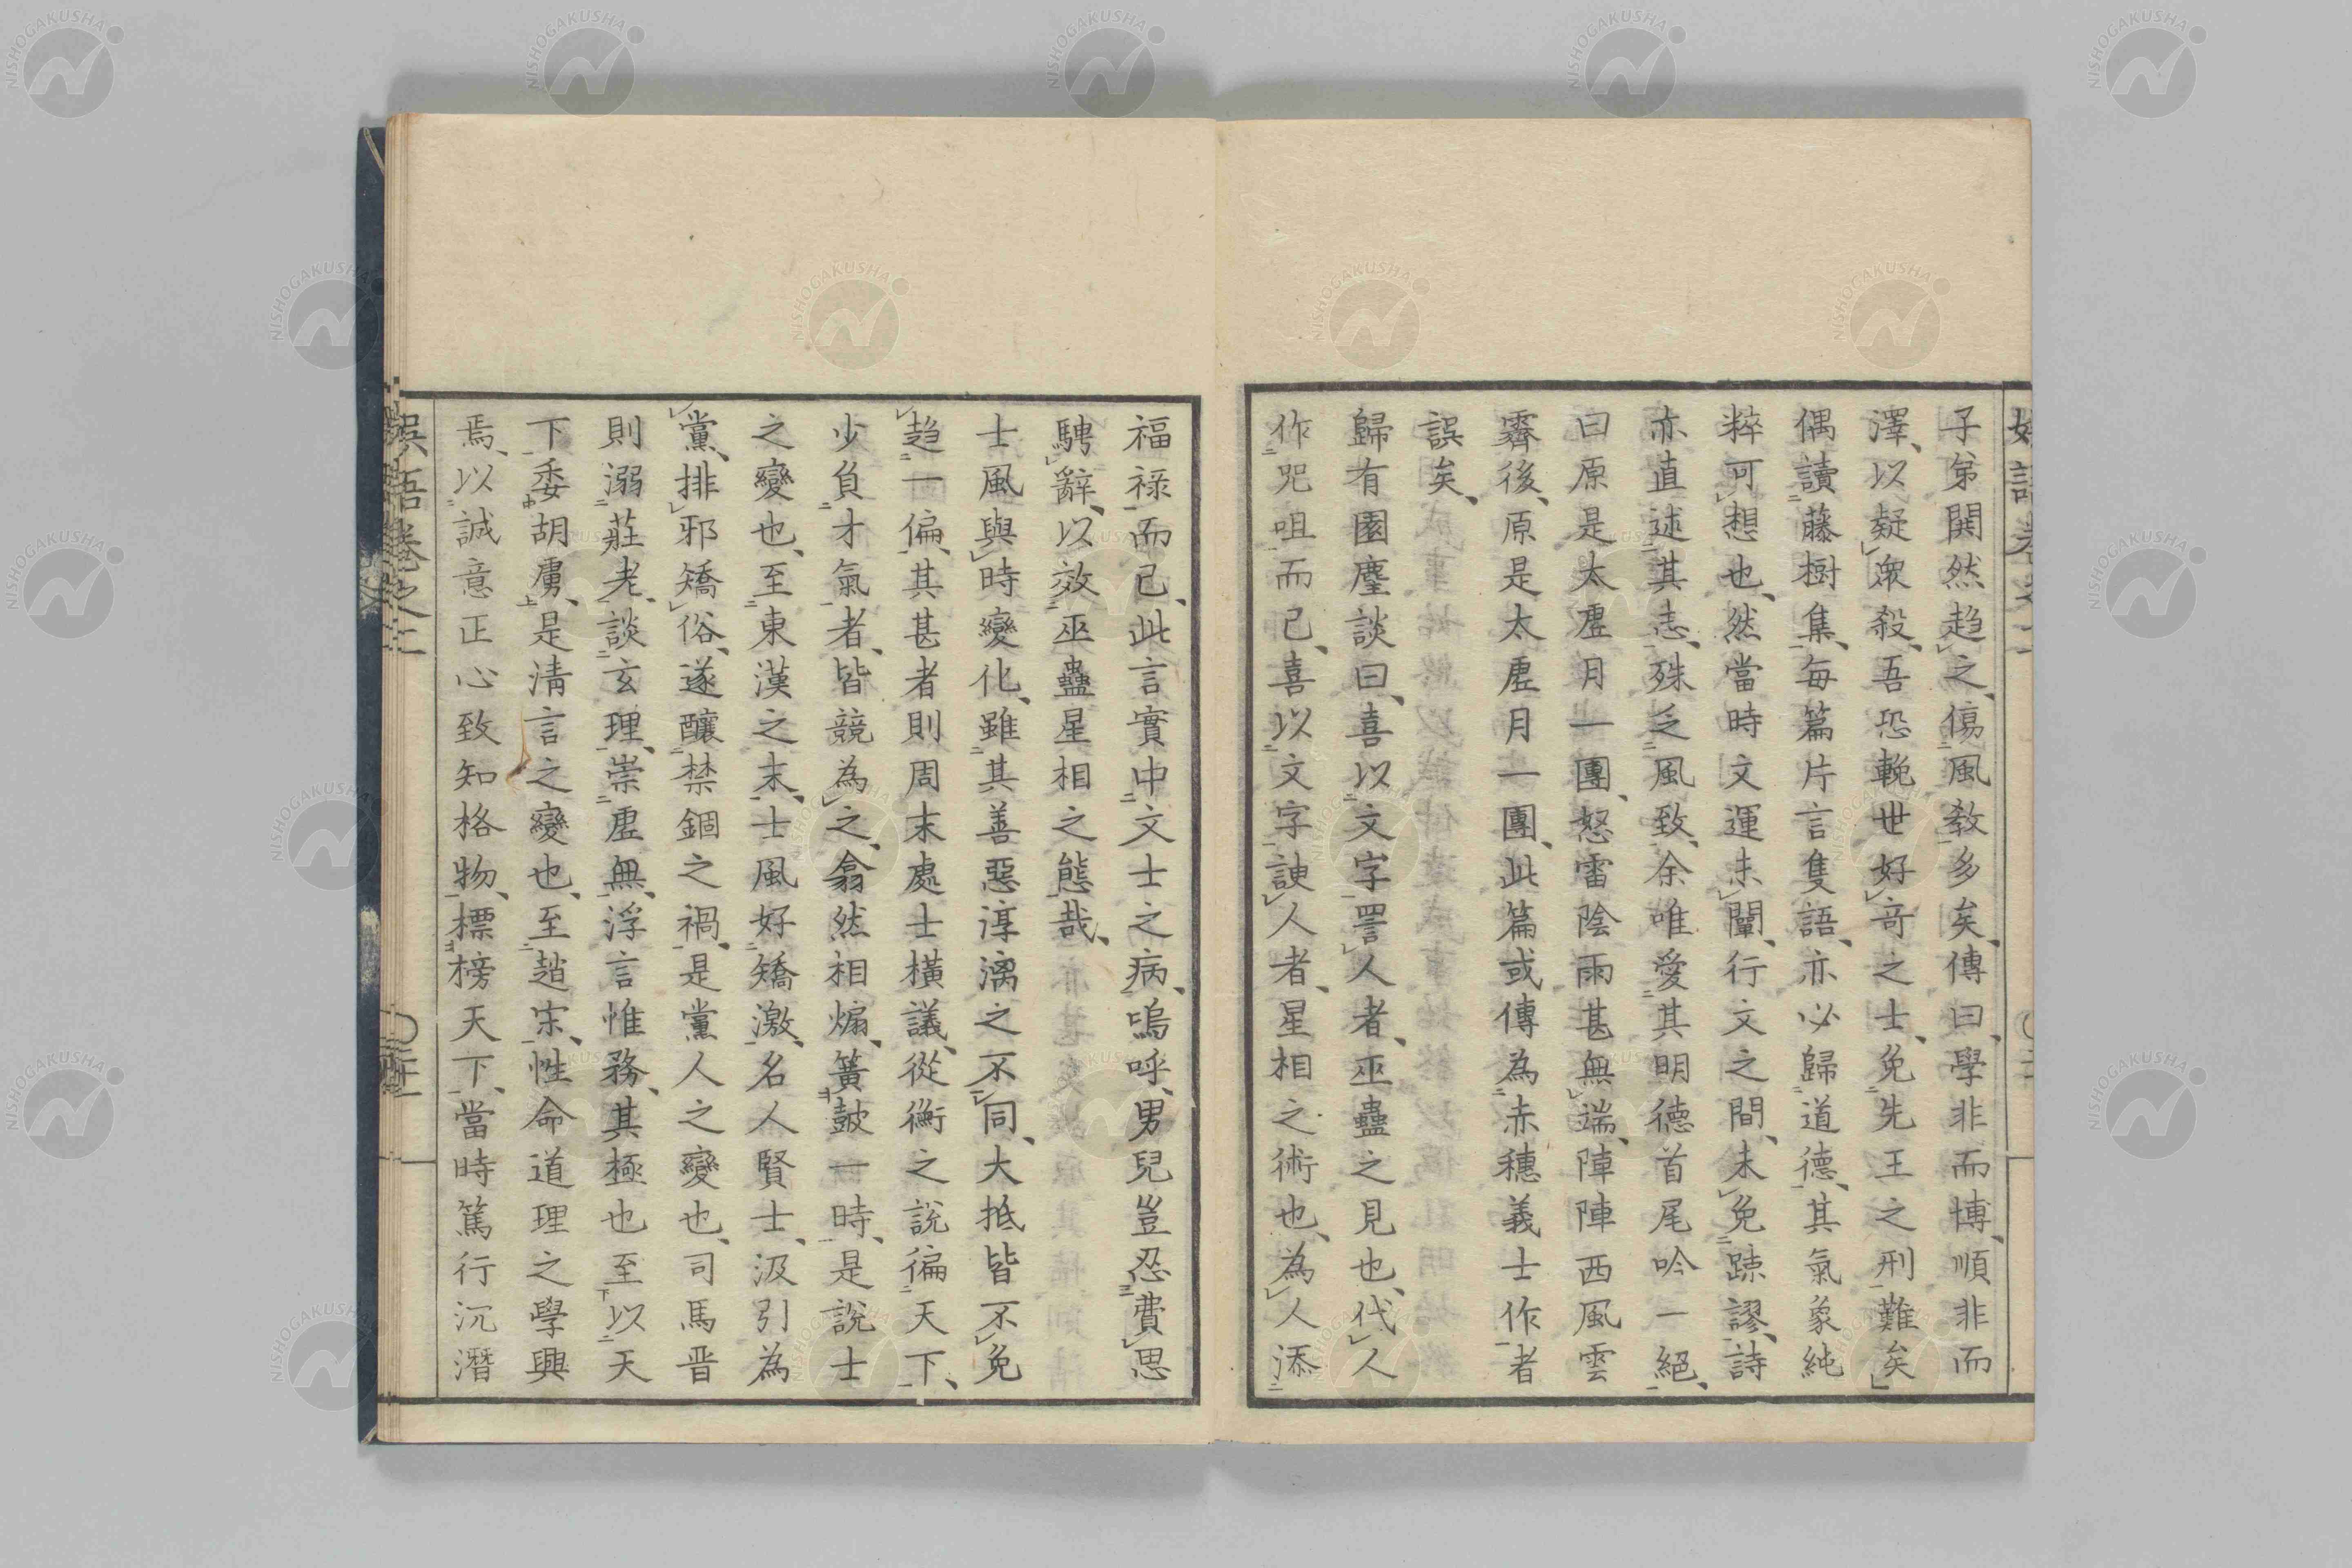 子弟閧然趨之、傷風教多矣、傳曰、學非而博、順非而
澤、以疑衆殺、吾恐輓世好奇之士、免先王之刑難矣
偶讀藤樹集、每篇片言隻語、亦必歸道德、其氣象純
粹可想也、然當時文運未闡、行文之間、未免踈謬、詩
亦直述其志、殊乏風致、余唯愛其明德首尾吟一絕、
曰原是太虛月一團、怒雷陰雨甚無端、陣陣西風雲
霽後、原是太虛月一團、此篇或傳為赤穗義士作者
誤矣、
歸有園麈談曰、喜以文字詈人者、巫蠱之見也、代人
作咒咀而已、喜以文字諛人者、星相之術也、為人添
福祿而已、此言實中文士之病、嗚呼、男兒豈忍費思
騁辭、以效巫蠱星相之態哉、
士風與時變化、雖其善惡淳漓之不同、大抵皆不免
趨一偏、其甚者則周末處士橫議、從衡之說徧天下、
少負才氣者、皆競為之、翕然相煽、簧鼓一時、是說士
之變也、至東漢之末、士風好矯激、名人賢士、汲引為
黨、排邪矯俗、遂釀禁錮之禍、是黨人之變也、司馬晉
則溺莊老、談玄理、崇虛無、浮言惟務、其極也至以天
下委胡虜、是清言之變也、至趙宋、性命道理之學興
焉、以誠意正心致知格物、標榜天下、當時篤行沉潛
誤語卷之二